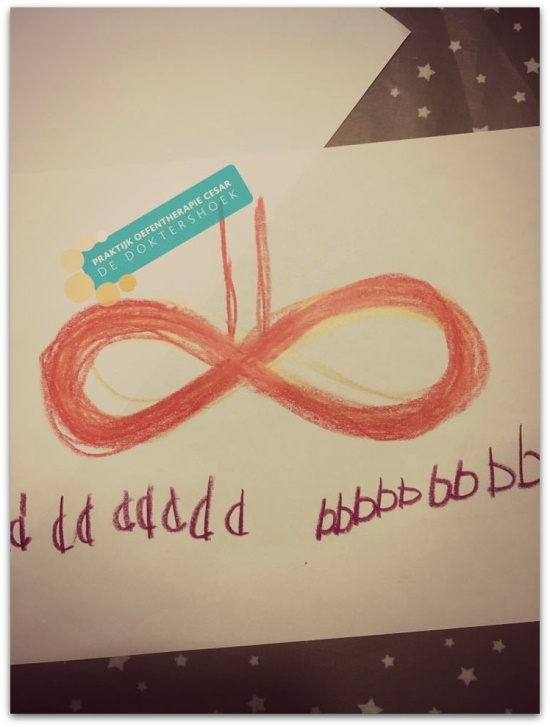 PRAKTIJK OEFENTHERAPIE CESAR
DE DOKTERSHOEK
d dd ddddd bbbbb bb bb